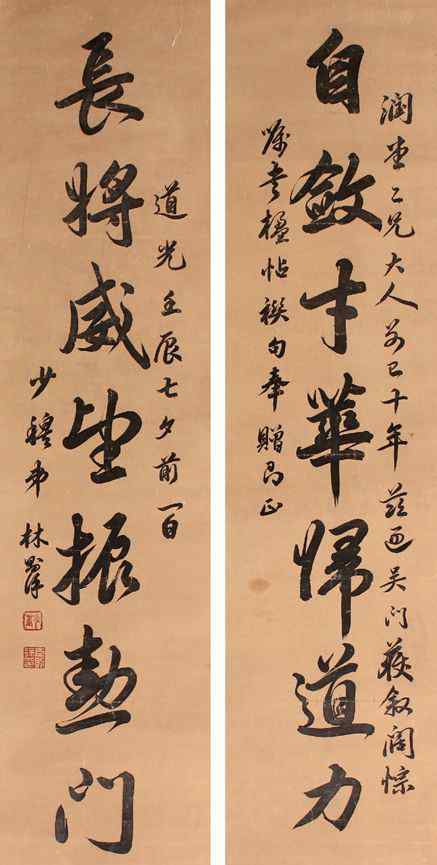 潤堂二兄大人别已十年茲過吳門獲叙闊悰
自斂才華歸道力
嘱書楹帖禊句奉贈即正
道光壬辰七夕前一日
長將威望振勳門
少穆弟林則徐